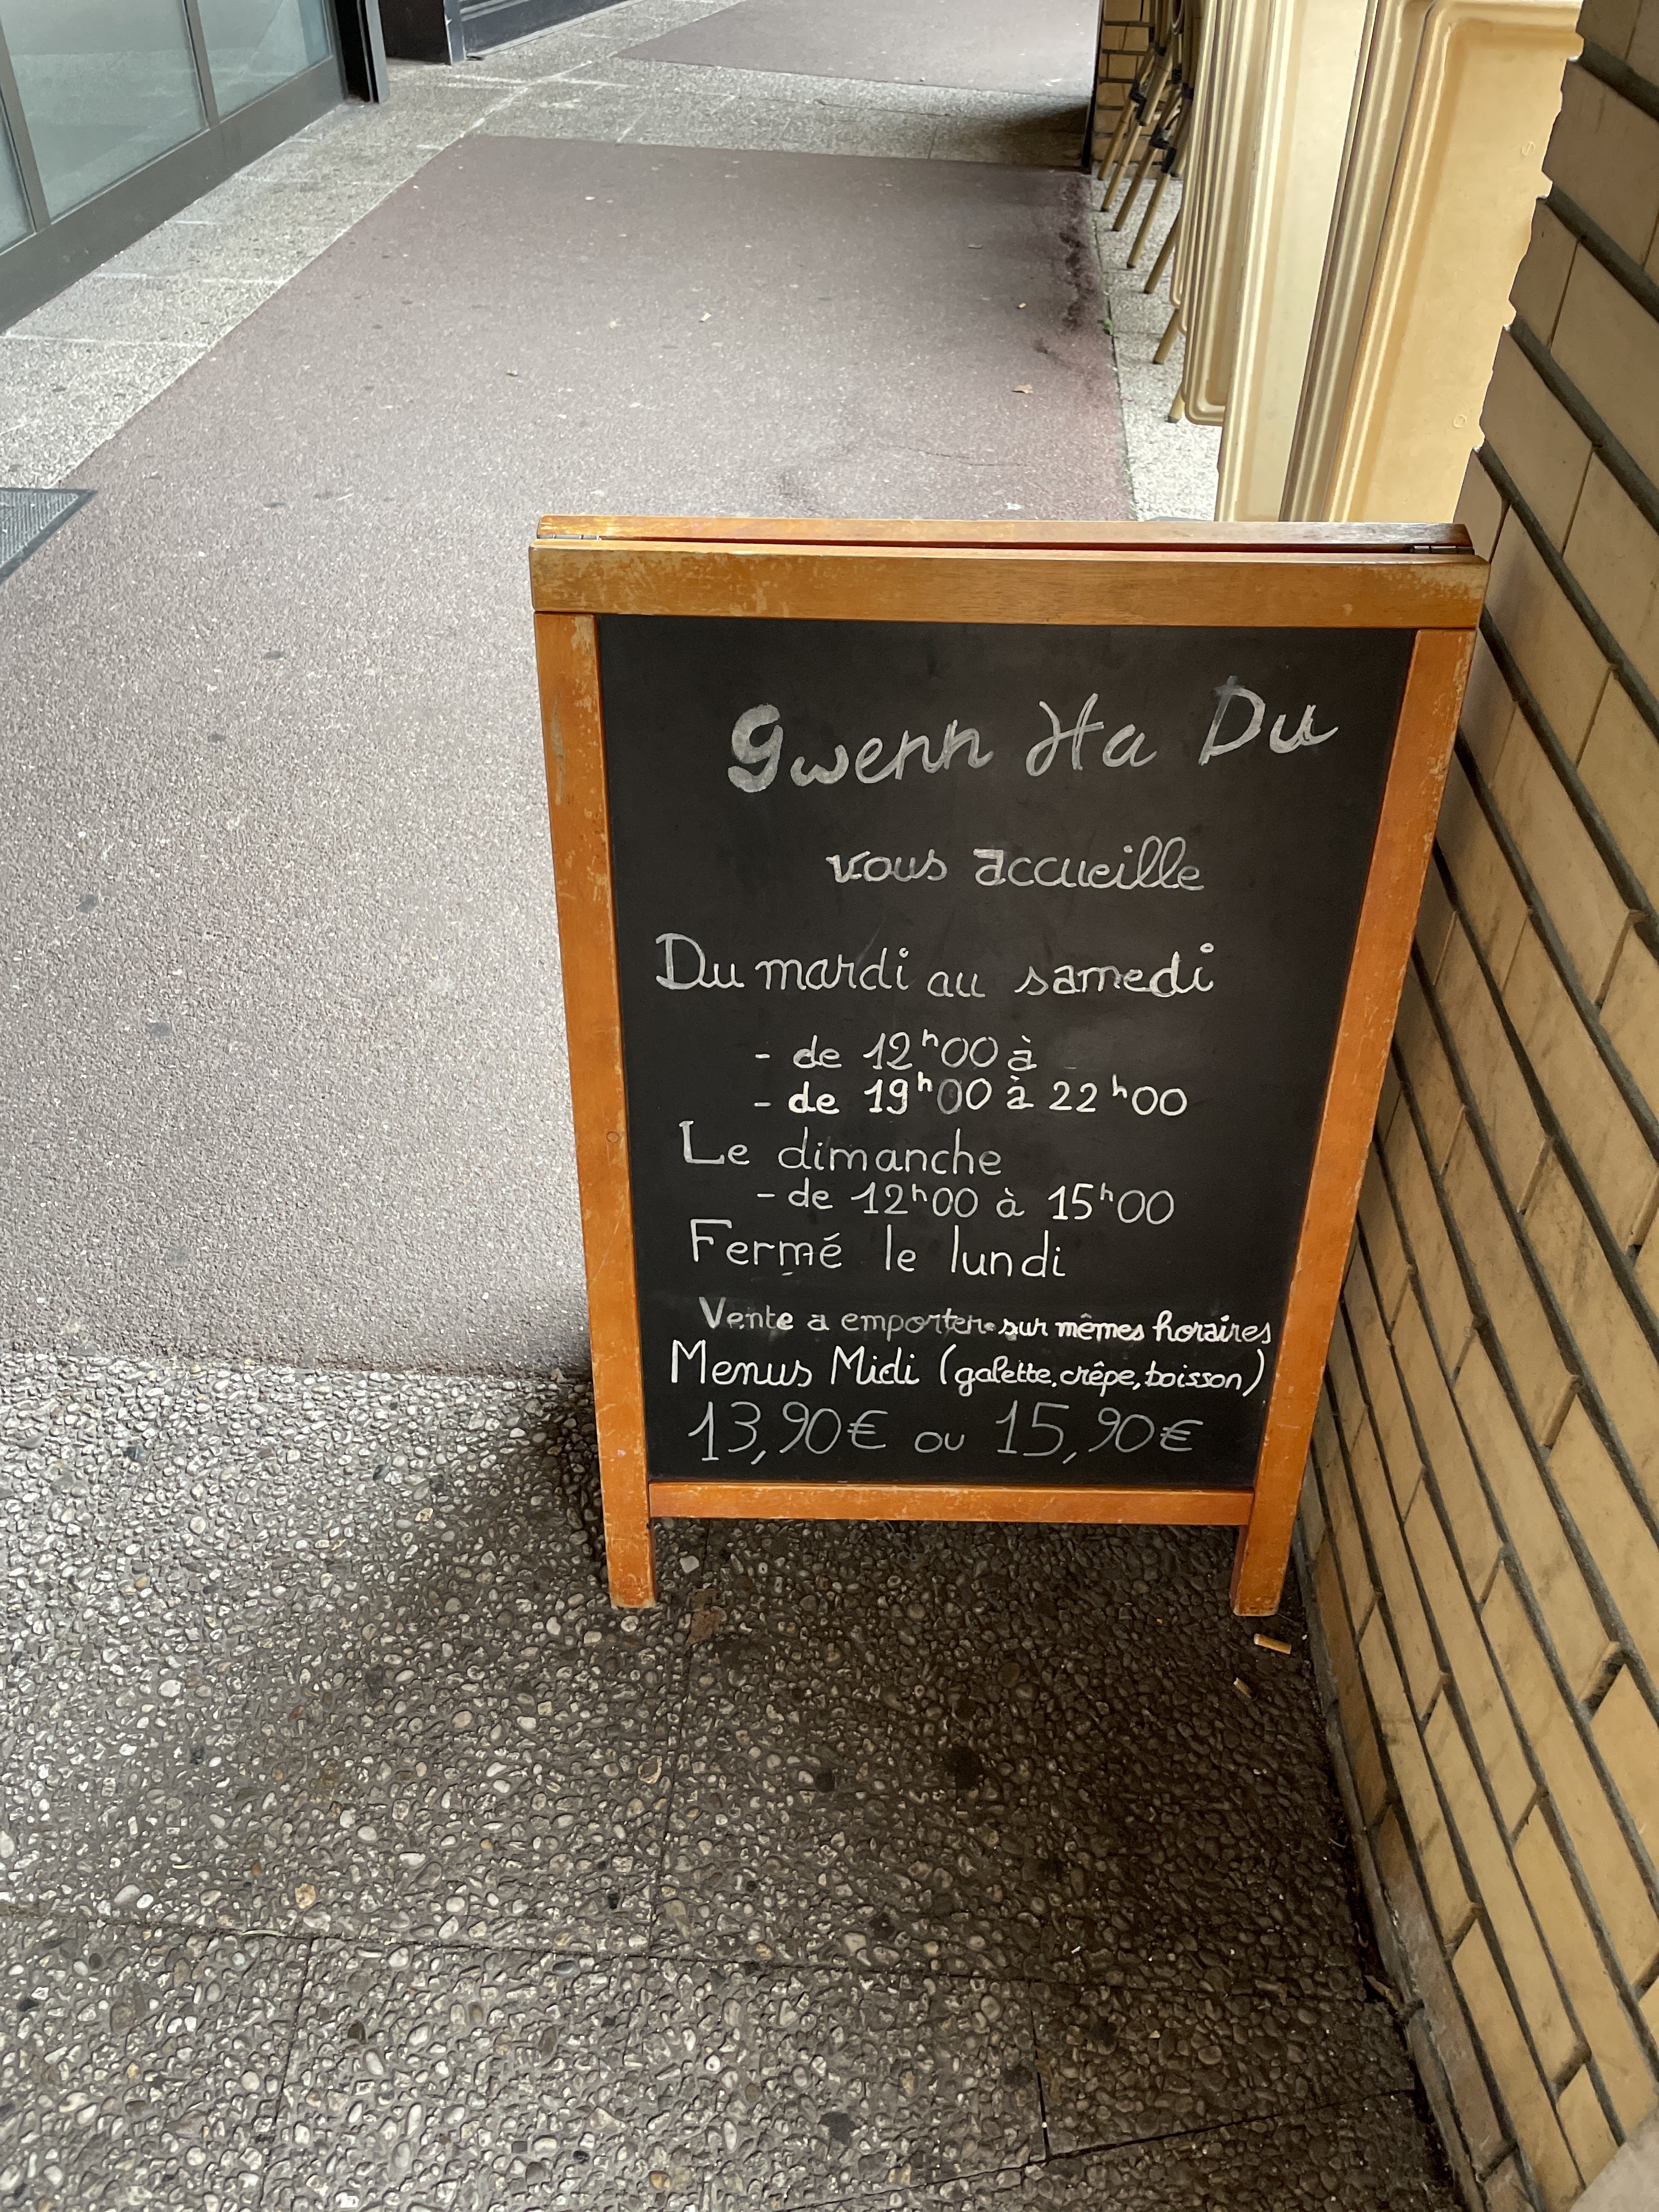 Gwenn Ha Du
vous accueille
Du mardi au samedi
- de 12h00 à
- de 19h00 à 22h00
Le dimanche
- de 12h00 à 15h00
Fermé le lundi
Vente a emporter sur mêmes horaires
Menus Midi (galette, crêpe, boisson)
13,90€ ou 15,90€